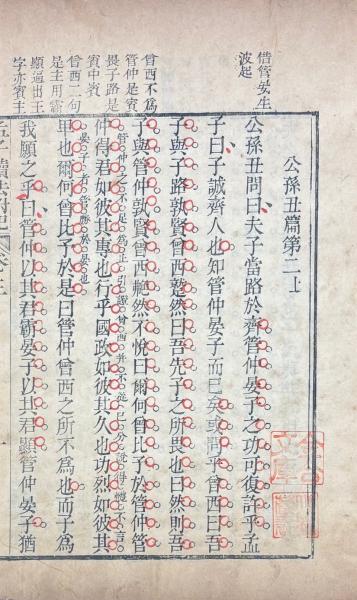 公孫丑篇第二上
公孫丑問曰夫子當路於齊管仲晏子之功可復許乎孟
子曰子誠齊人也知管仲晏子而已矣或問乎曾西曰吾
子與子路孰賢曾西蹵然曰吾先子之所畏也曰然則吾
子與管仲孰賢曾西艴然不悅曰爾何曾比予於管仲管
仲得君如彼其專也行乎國政如彼其久也功烈如彼其
卑也爾何曾比予於是曰管仲曾西之所不為也而子為
我願之乎曰管仲以其君霸晏子以其君顯管仲晏子猶
借管晏生
波起
曾西不為
管仲是賓
畏子路是
賓中賓
曾西二句
是主用霸
顯逼出王
字亦主賓